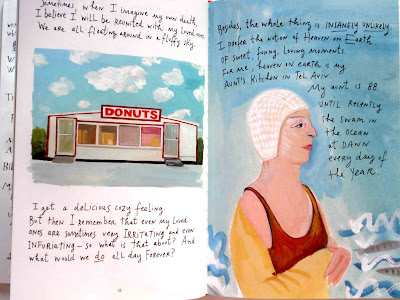 Sometimes, when I imagine my own death,
I believe I will be reunited with my loved ones.
We are all floating around in a fluffy sky.
DONUTS
I get a delicious cozy feeling.
But then I remember that even my loved
ones are sometimes very IRRITATING and even
INFURIATING - so what is that about? And
what would we do all day FOREVER?
Besides, the whole thing is INSANELY UNLIKELY.
I prefer the notion of Heaven on Earth
of sweet, funny, loving moments.
For me, heaven on earth is my
AUNT'S KITCHEN in TEL AVIV.
My aunt is 88
UNTIL RECENTLY
she swam in
the OCEAN
at DAWN
every day of
the YEAR.